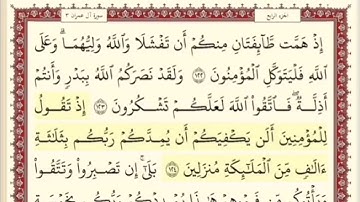 الجزء الرابع سورة آل عمران ٣
إِذْ هَمَّت طَّآئِفَتَانِ مِنكُمْ أَن تَفْشَلَا وَٱللَّهُ وَلِيُّهُمَا ۗ وَعَلَى
ٱللَّهِ فَلْيَتَوَكَّلِ ٱلْمُؤْمِنُونَ ١٢٢ وَلَقَدْ نَصَرَكُمُ ٱللَّهُ بِبَدْرٍ وَأَنتُمْ
أَذِلَّةٌ ۖ فَٱتَّقُوا۟ ٱللَّهَ لَعَلَّكُمْ تَشْكُرُونَ ١٢٣ إِذْ تَقُولُ
لِلْمُؤْمِنِينَ أَلَن يَكْفِيَكُمْ أَن يُمِدَّكُمْ رَبُّكُم بِثَلَٰثَةِ
ءَالَٰفٍ مِّنَ ٱلْمَلَٰٓئِكَةِ مُنزَلِينَ ١٢٤ بَلَىٰٓ ۚ إِن تَصْبِرُوا۟ وَتَتَّقُوا۟